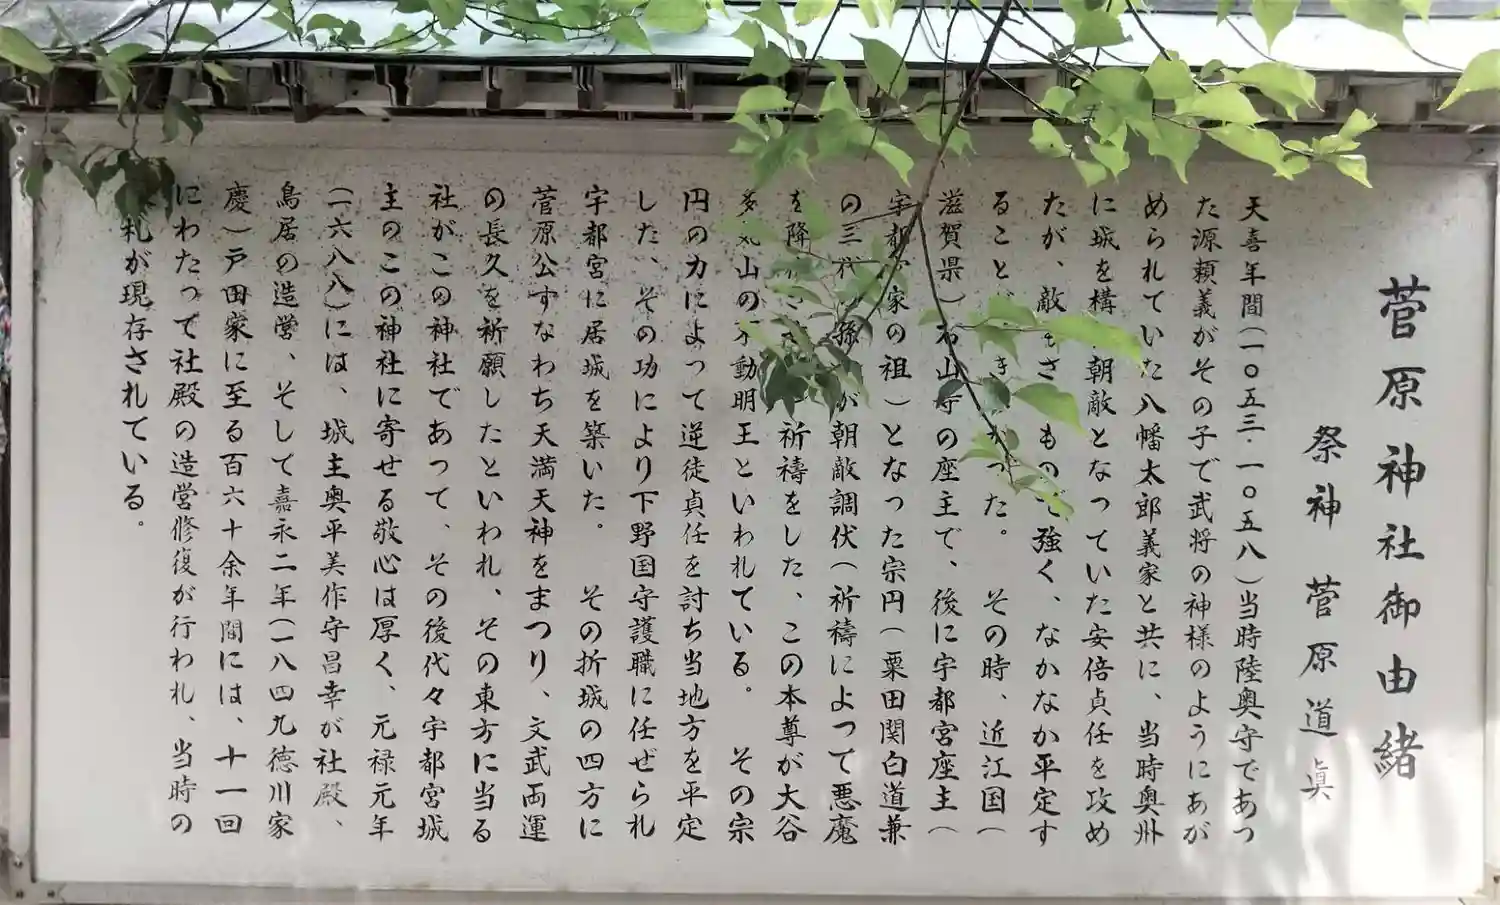 菅原神社御由緒
祭神 菅原道眞
天喜年間(一〇五三・一〇五八)当時陸奥守であっ
た源頼義がその子で武将の神様のようにあが
められていた八幡太郎義家と共に、当時奥州
に城を構 朝敵となっていた安倍貞任を攻め
たが、敵 さ もので強く、なかなか平定す
ること き かった。 その時、近江国(
滋賀県)石山寺の座主で、後に宇都宮座主(
宇都 家の祖)となった宗円(粟田関白道兼
の三代 孫 が朝敵調伏(祈禱によって悪魔
を降 祈禱をした、この本尊が大谷
多気山の不動明王といわれている。 その宗
円の力によって逆徒貞任を討ち当地方を平定
した、その功により下野国守護職に任ぜられ
宇都宮に居城を築いた。 その折城の四方に
菅原公すなわち天満天神をまつり、文武両運
の長久を祈願したといわれ、その東方に当る
社がこの神社であって、その後代々宇都宮城
主のこの神社に寄せる敬心は厚く、元禄元年
(一六八八)には、城主奥平美作守昌幸が社殿、
鳥居の造営、そして嘉永二年(一八四九徳川家
慶)戸田家に至る百六十余年間には、十一回
にわたって社殿の造営修復が行われ、当時の
札が現存されている。